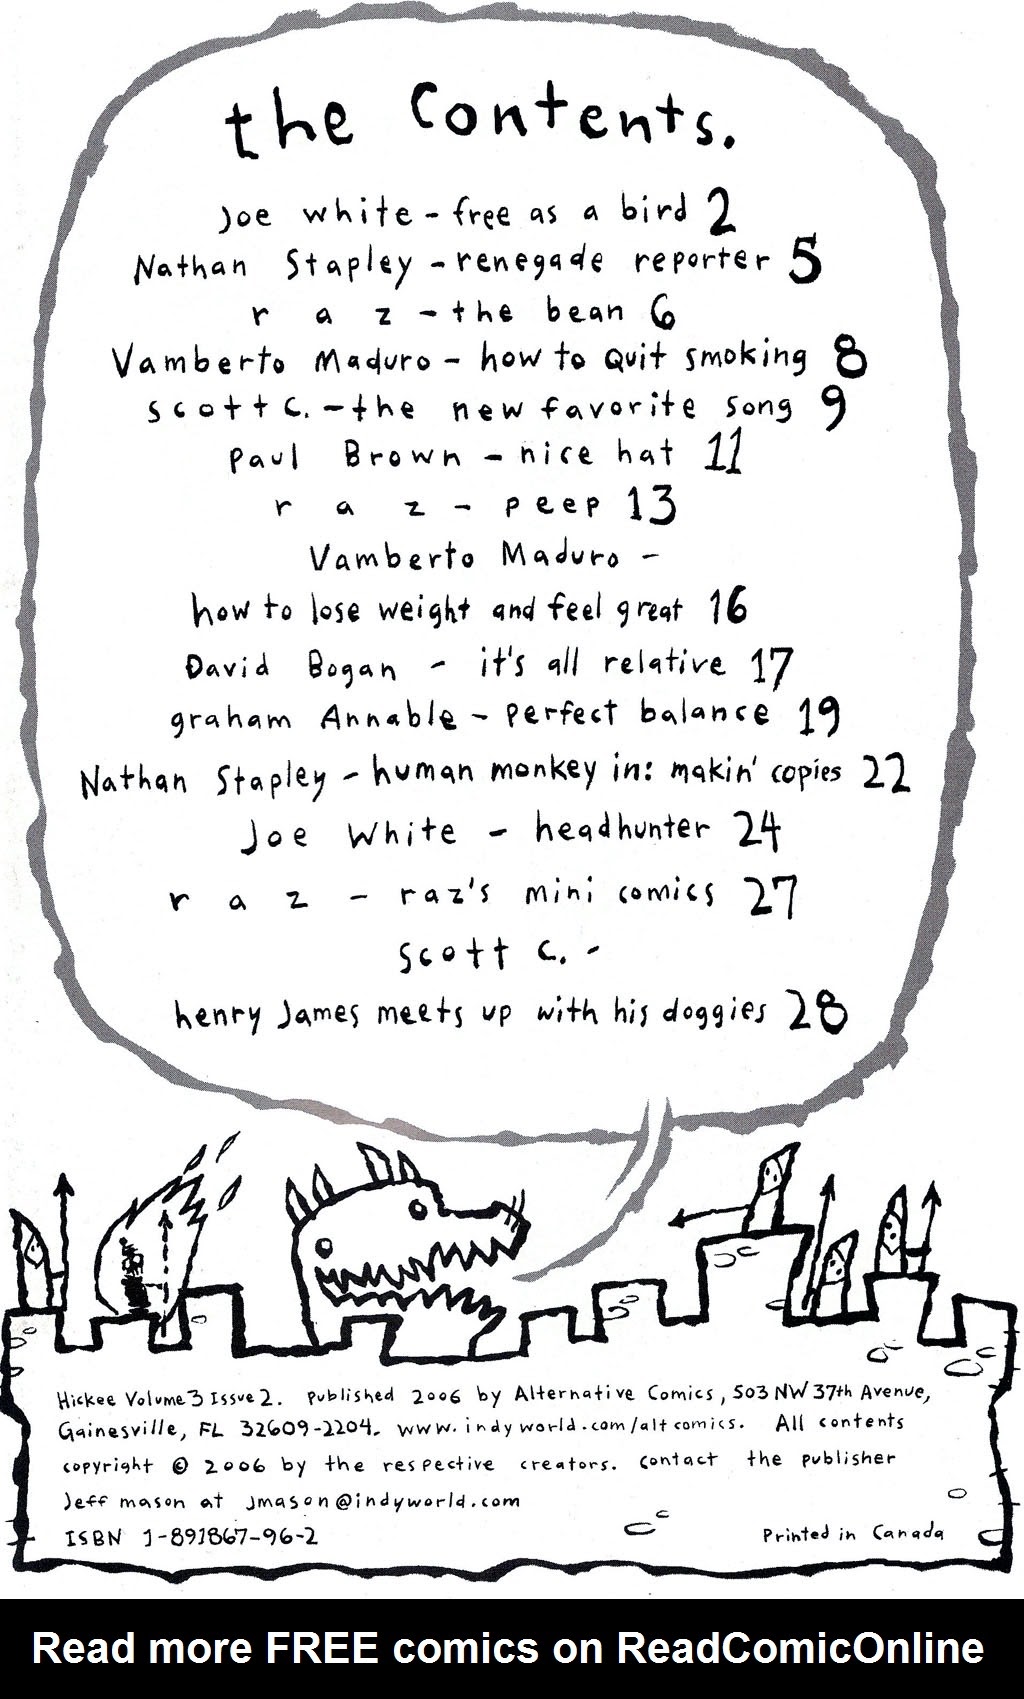 the contents.
Joe white - free as a bird 2
Nathan Stapley - renegade reporter 5
r a z - the bean 6
Vamberto Maduro - how to Quit smoking 8
scott c. - the new favorite song 9
Paul Brown - nice hat 11
r a z - peep 13
Vamberto Maduro -
how to lose weight and feel great 16
David Bogan - it's all relative 17
graham Annable - perfect balance 19
Nathan Stapley - human monkey in: makin' copies 22
Joe White - headhunter 24
r a z - raz's mini comics 27
scott c. -
henry James meets up with his doggies 28
Hickee Volume 3 Issue 2. Published 2006 by Alternative Comics, 503 NW 37th Avenue,
Gainesville, FL 32609-2204. www.indyworld.com/altcomics. All contents
copyright © 2006 by the respective creators. contact the publisher
Jeff mason at jmason@indyworld.com
ISBN 1-891867-96-2
Printed in Canada
Read more FREE comics on ReadComicOnline